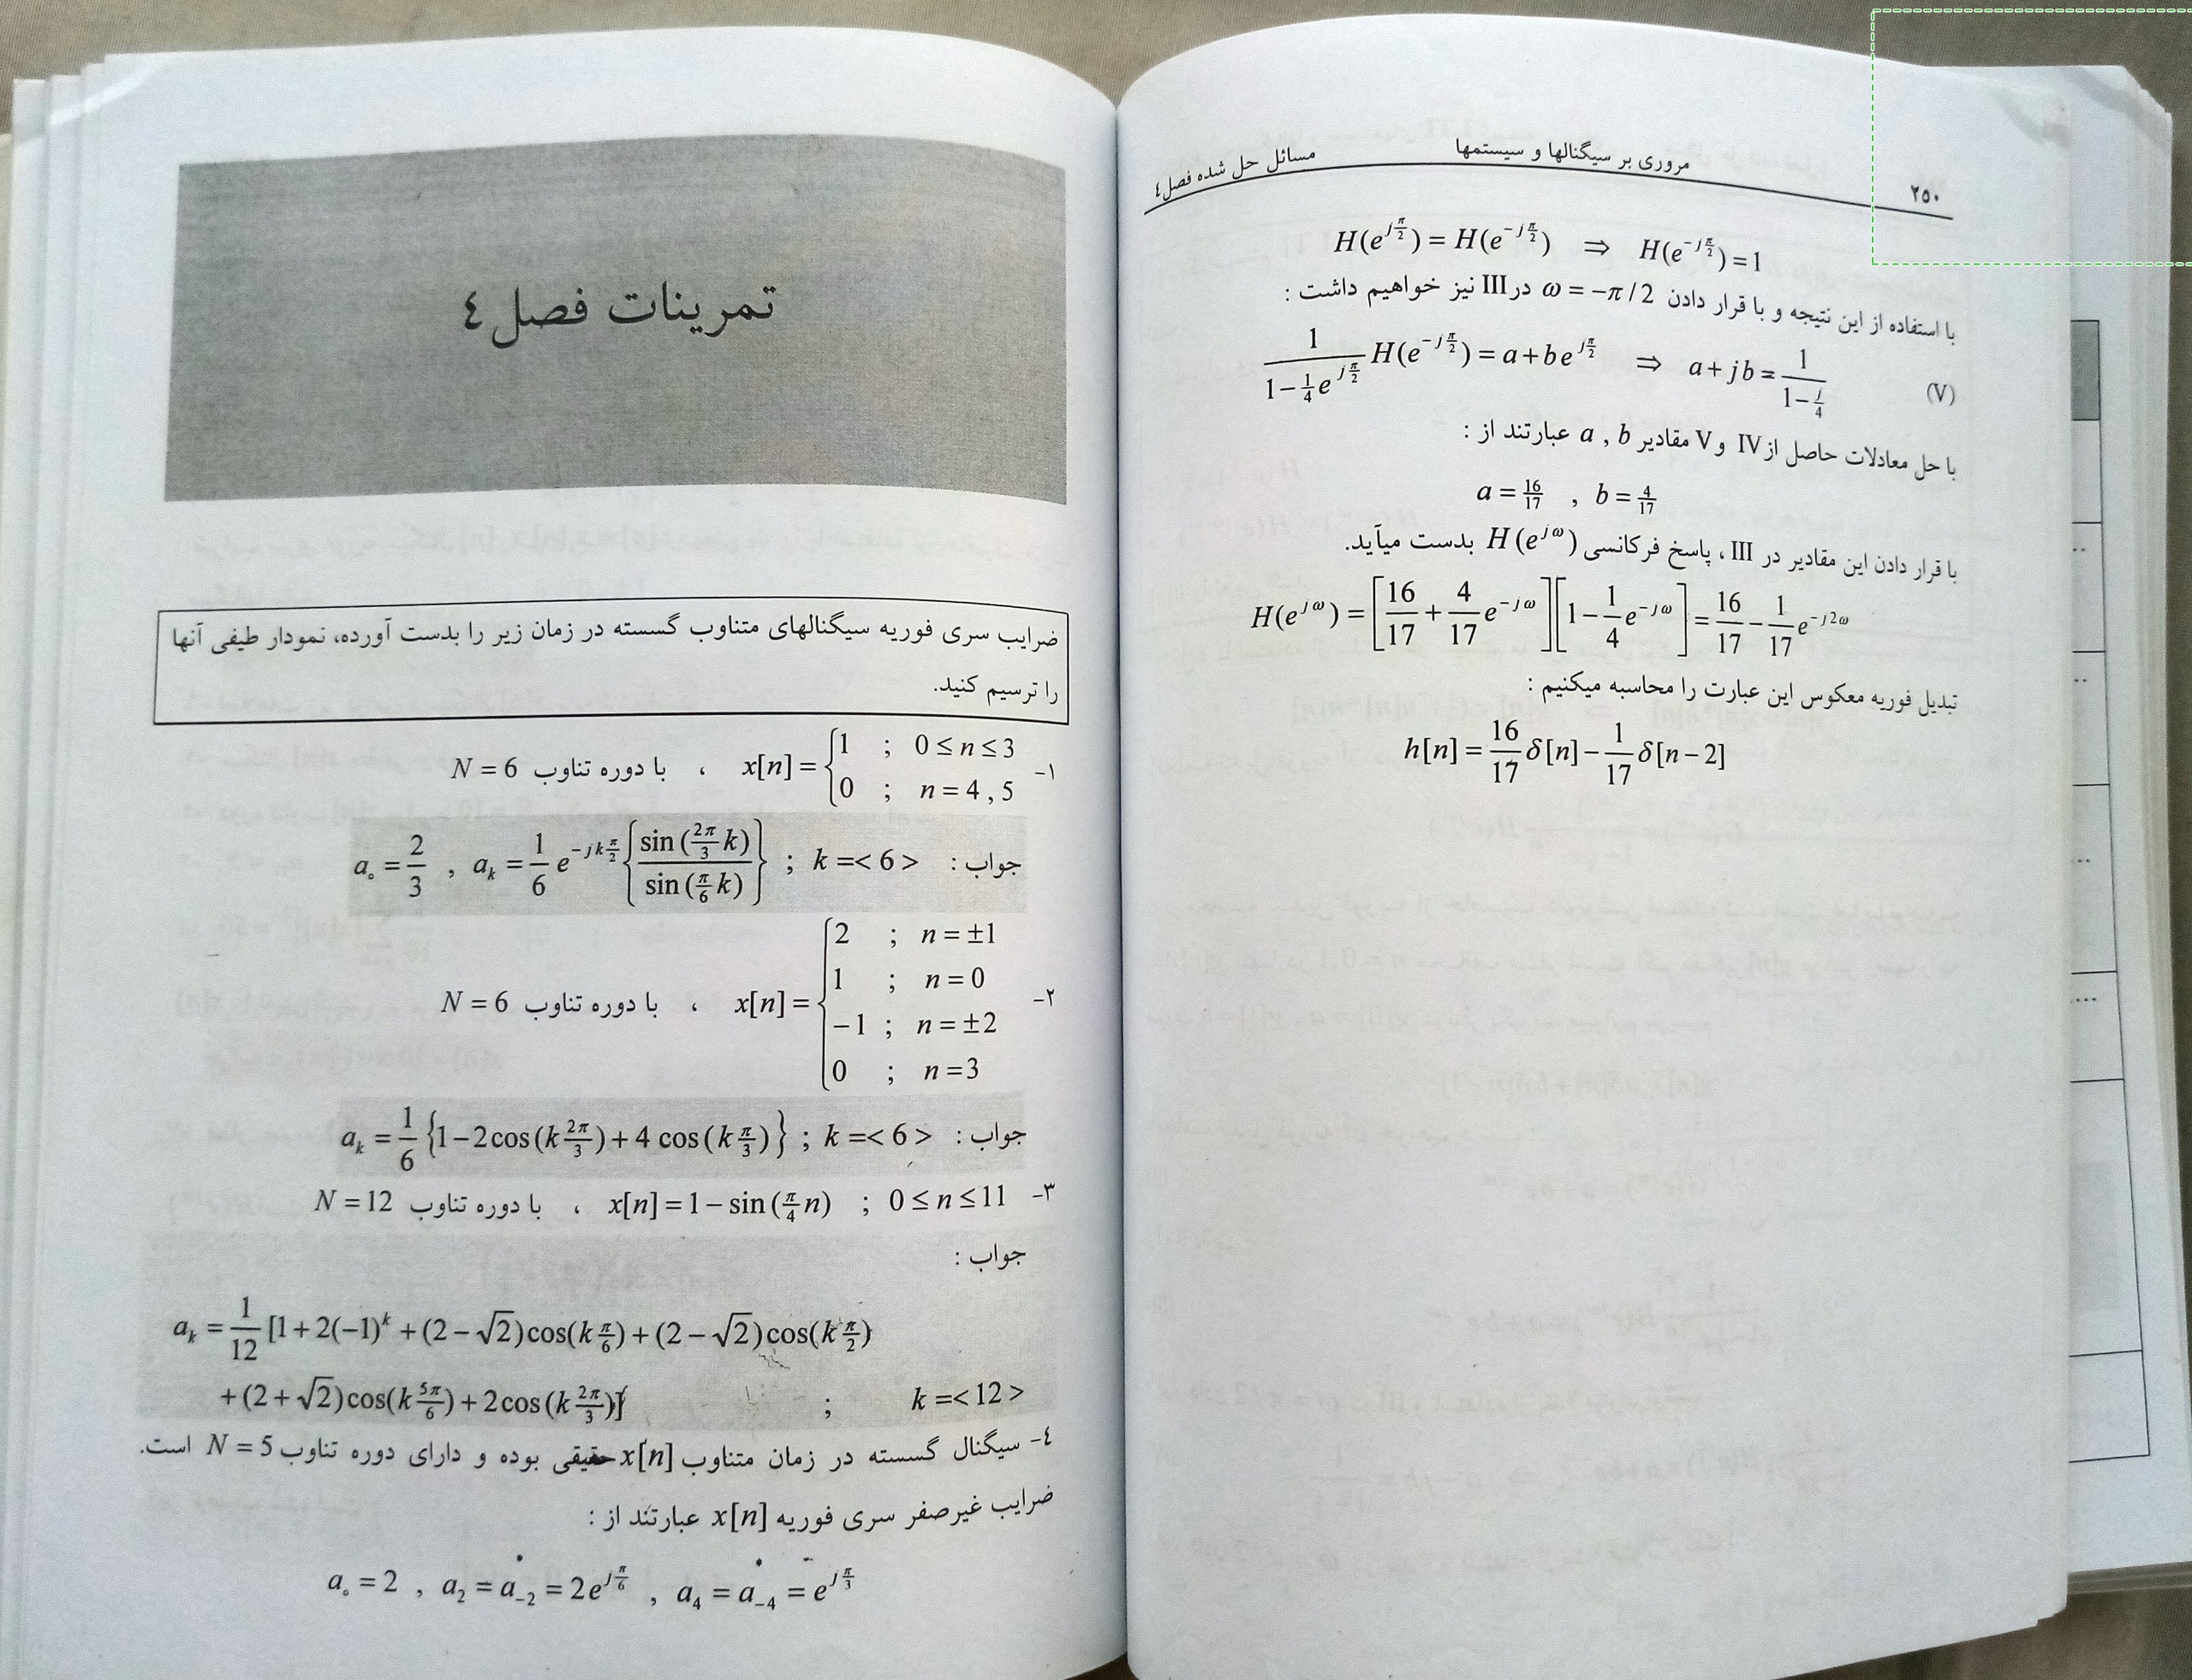 مروری بر سیگنالها و سیستمها
مسائل حل شده فصل ٤
٢٥٠
H(e^{jπ/2}) = H(e^{-jπ/2}) ⇒ H(e^{-jπ/2}) = 1
با استفاده از این نتیجه و با قرار دادن ω = −π/2 در III نیز خواهیم داشت :
\frac{1}{1-\frac{1}{4}e^{jπ/2}} H(e^{-jπ/2}) = a + b e^{jπ/2} ⇒ a + jb = \frac{1}{1-\frac{j}{4}} (V)
با حل معادلات حاصل از IV و V مقادیر a , b عبارتند از :
a = 16/17 , b = 4/17
با قرار دادن این مقادیر در III ، پاسخ فرکانسی H(e^{jω}) بدست میآید.
H(e^{jω}) = [16/17 + 4/17 e^{-jω}][1 − 1/4 e^{-jω}] = 16/17 − 1/17 e^{-j2ω}
تبدیل فوریه معکوس این عبارت را محاسبه میکنیم :
h[n] = 16/17 δ[n] − 1/17 δ[n−2]
تمرینات فصل ٤
ضرایب سری فوریه سیگنالهای متناوب گسسته در زمان زیر را بدست آورده، نمودار طیفی آنها
را ترسیم کنید.
١- x[n] = { 1 ; 0 ≤ n ≤ 3
0 ; n = 4 , 5 ، با دوره تناوب N = 6
جواب : a₀ = 2/3 , a_k = 1/6 e^{-jkπ/2} { sin(2π/3 k) / sin(π/6 k) } ; k =< 6 >
٢- x[n] = { 2 ; n = ±1
1 ; n = 0
−1 ; n = ±2
0 ; n = 3 ، با دوره تناوب N = 6
جواب : a_k = 1/6 {1 − 2cos(k 2π/3) + 4 cos(k π/3)} ; k =< 6 >
٣- x[n] = 1 − sin(π/4 n) ; 0 ≤ n ≤ 11 ، با دوره تناوب N = 12
جواب :
a_k = 1/12 [1 + 2(−1)^k + (2 − √2)cos(k π/6) + (2 − √2)cos(k π/2)
+ (2 + √2)cos(k 5π/6) + 2cos(k 2π/3)] ; k =< 12 >
٤- سیگنال گسسته در زمان متناوب x[n] حقیقی بوده و دارای دوره تناوب N = 5 است.
ضرایب غیرصفر سری فوریه x[n] عبارتند از :
a₀ = 2 , a₂ = a₋₂ = 2e^{jπ/6} , a₄ = a₋₄ = e^{jπ/3}